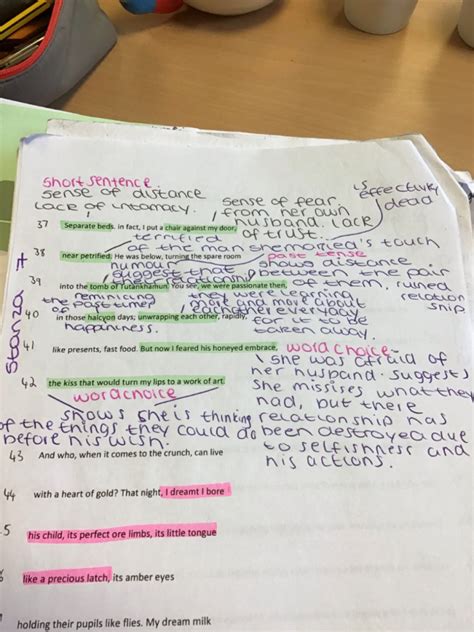 short sentence.
sense of distance
lack of intomacy.
sense of fear
from her own
husband. Lack
of trust.
is effectivly
dead
37 Separate beds. in fact, I put a chair against my door,
terrified
of the man she married's touch
38 near petrified. He was below, turning the spare room
past tense
humour
suggest that
shows distance
between the pair
39 into the tomb of Tutankhamun. You see, we were passionate then,
of them, ruined
relation
ship
reminicing
they were learning
more and more about
eachother everyday
40 in those halcyon days; unwrapping each other, rapidly,
happainess.
to be
taken away.
stanza 7
41 like presents, fast food. But now I feared his honeyed embrace,
word choice.
she was afraid of
her husband. suggests
she missises what they
had, but there
relationship has
been destroyed due
to selfishness and
his actions.
42 the kiss that would turn my lips to a work of art.
word choice
shows she is thinking
of the things they could do
before his wish.
43 And who, when it comes to the crunch, can live
44 with a heart of gold? That night, I dreamt I bore
5 his child, its perfect ore limbs, its little tongue
like a precious latch, its amber eyes
holding their pupils like flies. My dream milk